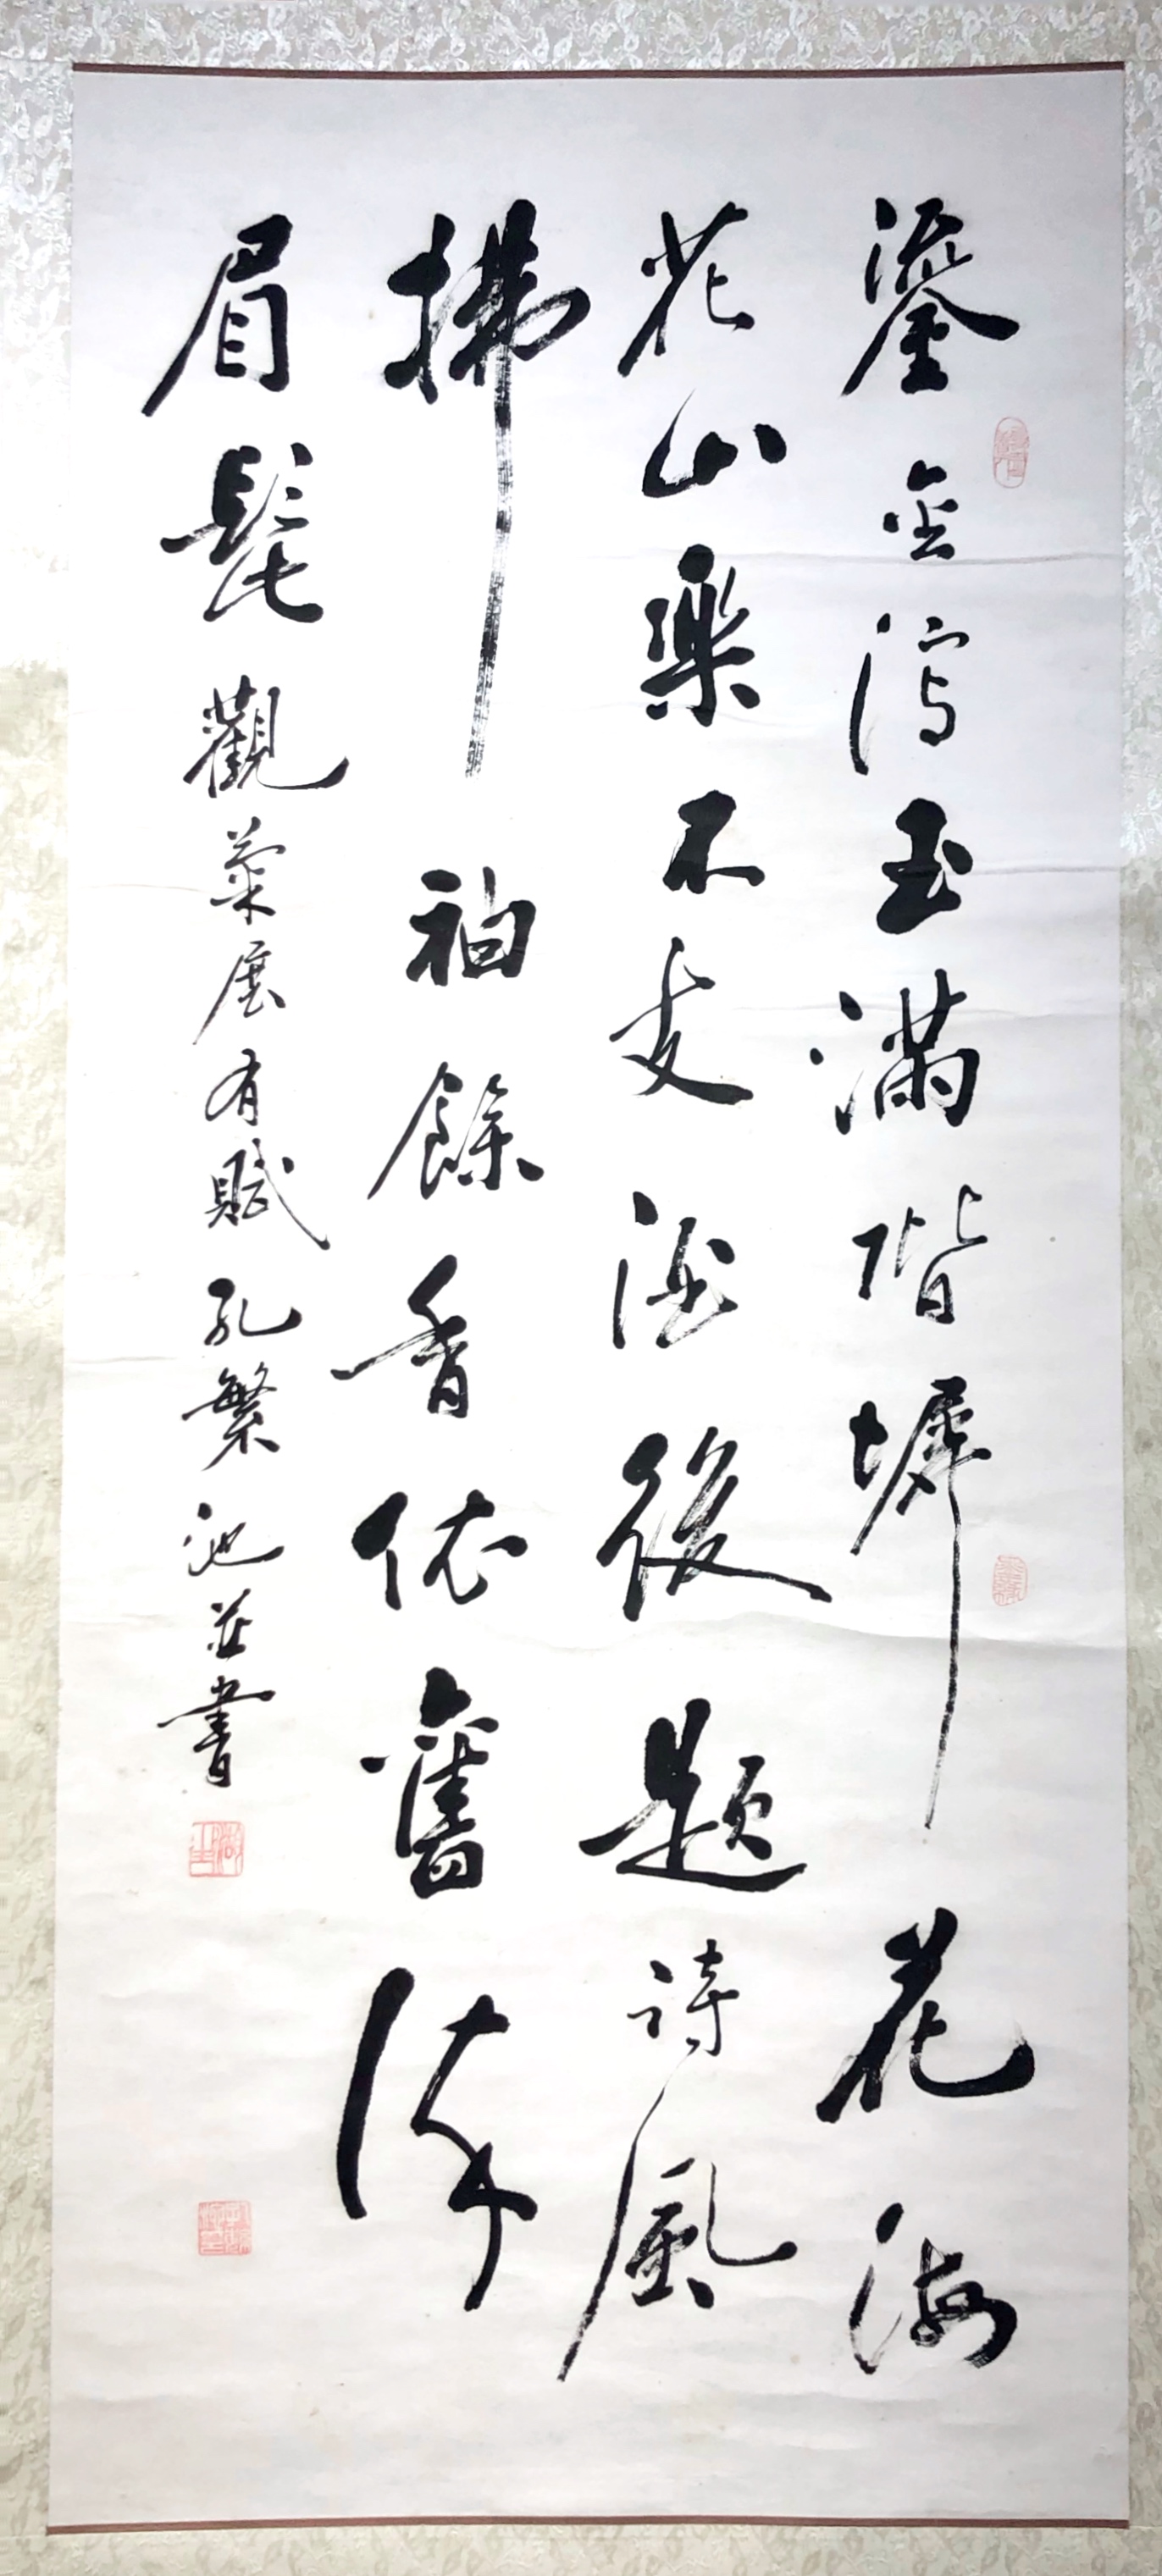 鎏金泻玉滿階墀花海
花山樂不支酒後題詩風
拂袖餘香依舊沐
眉髭觀菊展有賦孔繁池並書